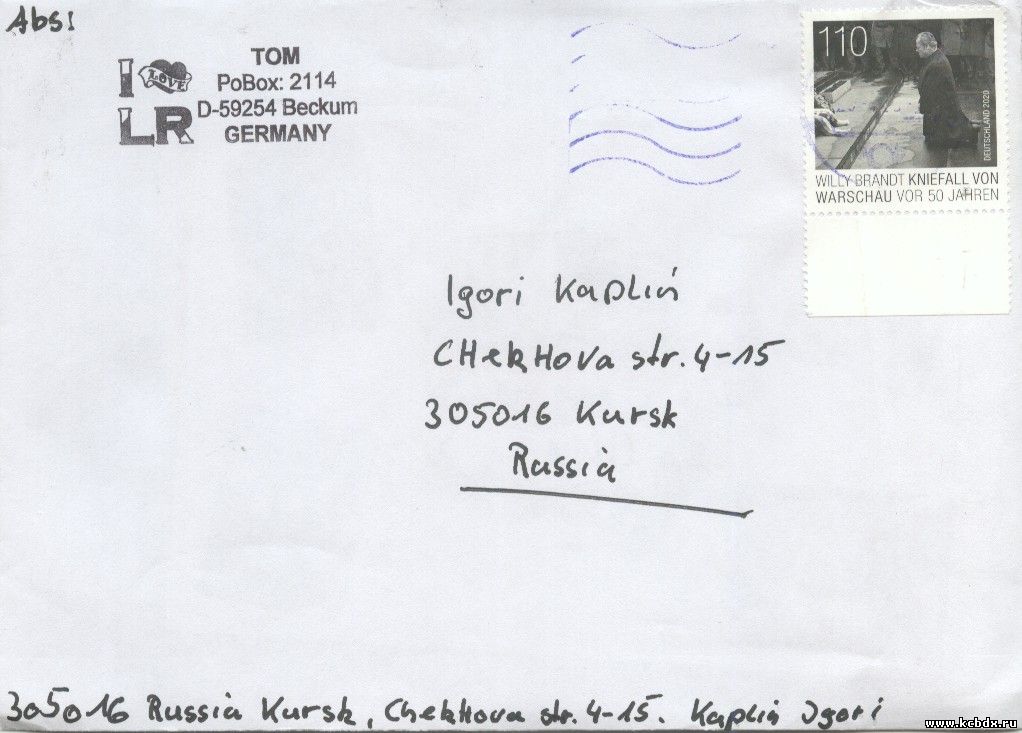 Abs:
I LOVE
LR
TOM
PoBox: 2114
D-59254 Beckum
GERMANY
110
DEUTSCHLAND 2020
WILLY BRANDT KNIEFALL VON
WARSCHAU VOR 50 JAHREN
Igori Kapliń
CHekHova str. 4-15
305016 Kursk
Russia
305016 Russia Kursk, ChekHova str. 4-15. Kapliń Igori
www.kcbdx.ru